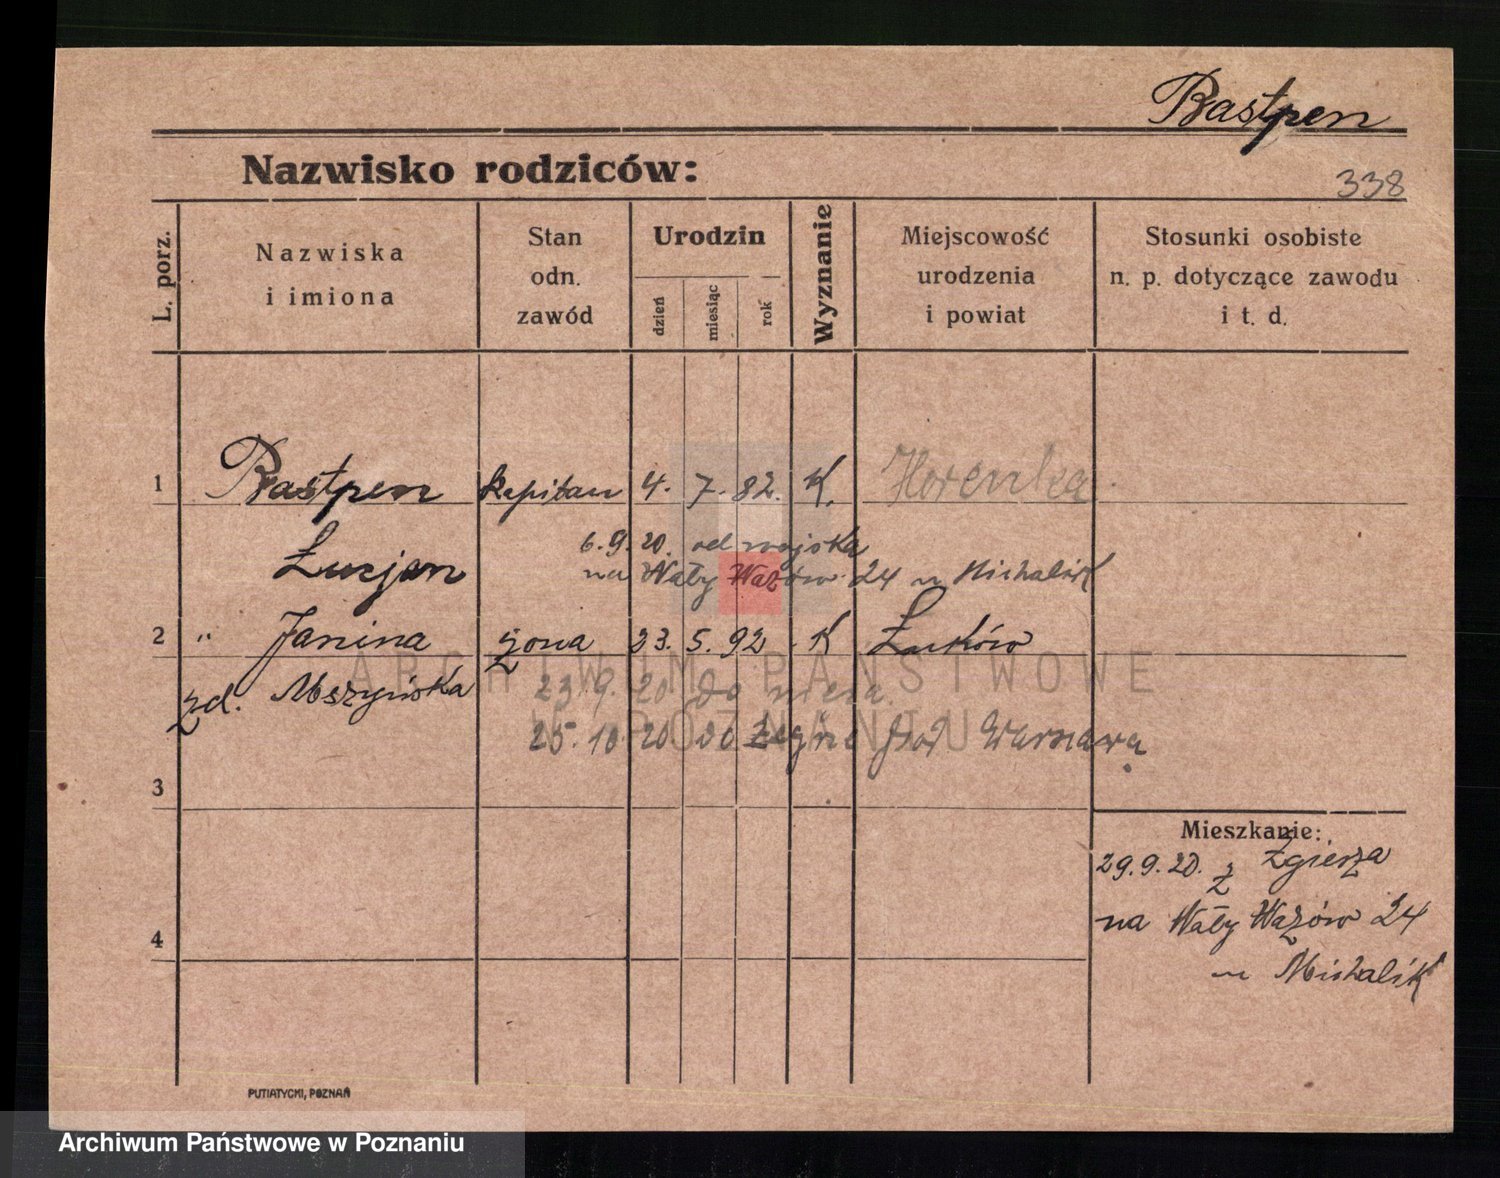 Bastpen
Nazwisko rodziców:
338
L. porz.
Nazwiska
i imiona
Stan
odn.
zawód
Urodzin
dzień
miesiąc
rok
Wyznanie
Miejscowość
urodzenia
i powiat
Stosunki osobiste
n. p. dotyczące zawodu
i t. d.
1 Bastpen kapitan 4. 7. 82. K. Horenka
6.9.20. od wojska
Łucjan na Wały Wazów 24 u Michalik
2 " Janina żona 23. 5. 92 K Łuków
zd. Mszyńska 23.9.20 do
25.10.20 do Pod Warszawą
3
Mieszkanie:
29.9.20. z Zgierza
na Wały Wazów 24
u Michalik
4
PUTIATYCKI, POZNAŃ
ARCHIWUM PAŃSTWOWE
W POZNANIU
Archiwum Państwowe w Poznaniu